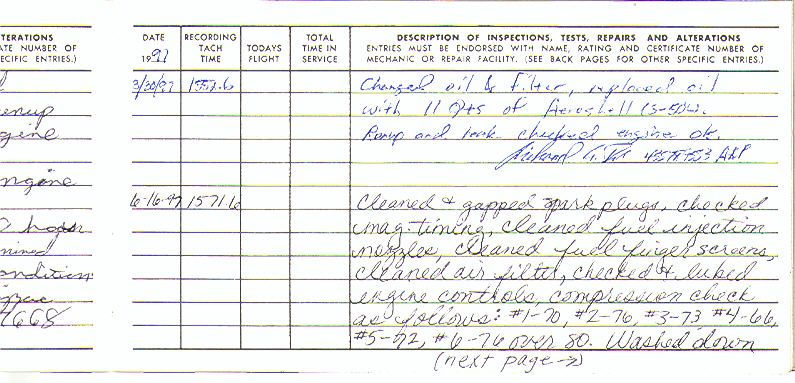 TERATIONS
ATE NUMBER OF
ECIFIC ENTRIES.)
enup
gine
ngine
2 hoos
mined
ondition
7668
DATE
1997
RECORDING
TACH
TIME
TODAYS
FLIGHT
TOTAL
TIME IN
SERVICE
DESCRIPTION OF INSPECTIONS, TESTS, REPAIRS AND ALTERATIONS
ENTRIES MUST BE ENDORSED WITH NAME, RATING AND CERTIFICATE NUMBER OF
MECHANIC OR REPAIR FACILITY. (SEE BACK PAGES FOR OTHER SPECIFIC ENTRIES.)
3/20/97 Changed oil & filter, replaced oil
with 11 Qts of Aeroshell
Runup and leak checked engine ok.
A&P
6-16-97 1571.6 Cleaned & gapped spark plugs, checked
mag-timing, cleaned fuel injection
nozzles, cleaned fuel finger screens,
cleaned air filter, checked & lubed
engine controls, compression check
as follows: #1-70, #2-76, #3-73 #4-66,
#5-72, #6-76 over 80. Washed down
(next page →)